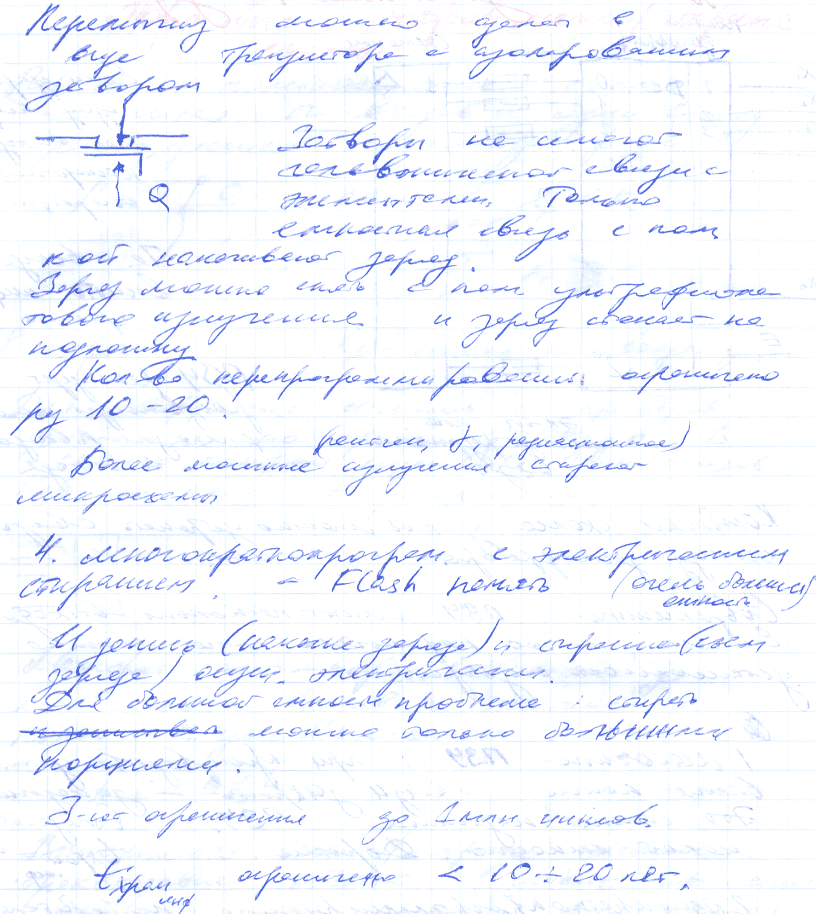 Перемычку можно сделать в
виде транзистора с изолированным
затвором
Q
Затворы не имеют
гальванической связи с
элементами. Только
емкостная связь с
кот накапливают заряд.
Заряд можно снять с пом ультрафиоле
тового излучения и заряд стекает на
подложку
Кол-во перепрограммирований ограничено
10-20.
(рентген, γ, радиационное)
Более мощные излучения стирают
микросхемы
4. Многократнопрограм. с электрическим
стиранием. - Flash память (очень большая
емкость)
И запись (накопле заряда) и стирание (съем
заряда) осущ. электрически.
Для большой емкости проблема: стирать
можно только большими
порциями.
ограничения до 1 млн циклов.
t хран инф ограничено < 10 ÷ 20 лет.